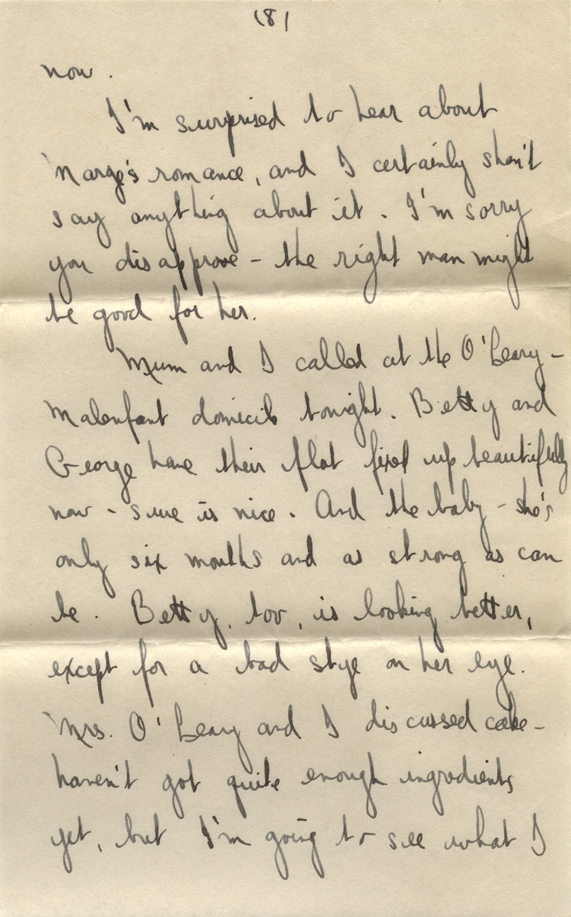 (8)
now.
I'm surprised to hear about
Marge's romance, and I certainly shan't
say anything about it. I'm sorry
you disapprove - the right man might
be good for her.
Mum and I called at the O'Leary-
Malenfant domicile tonight. Betty and
George have their flat fixed up beautifully
now - sure is nice. And the baby - she's
only six months and as strong as can
be. Betty, too, is looking better,
except for a bad stye on her eye.
Mrs. O'Leary and I discussed cake -
haven't got quite enough ingredients
yet, but I'm going to see what I